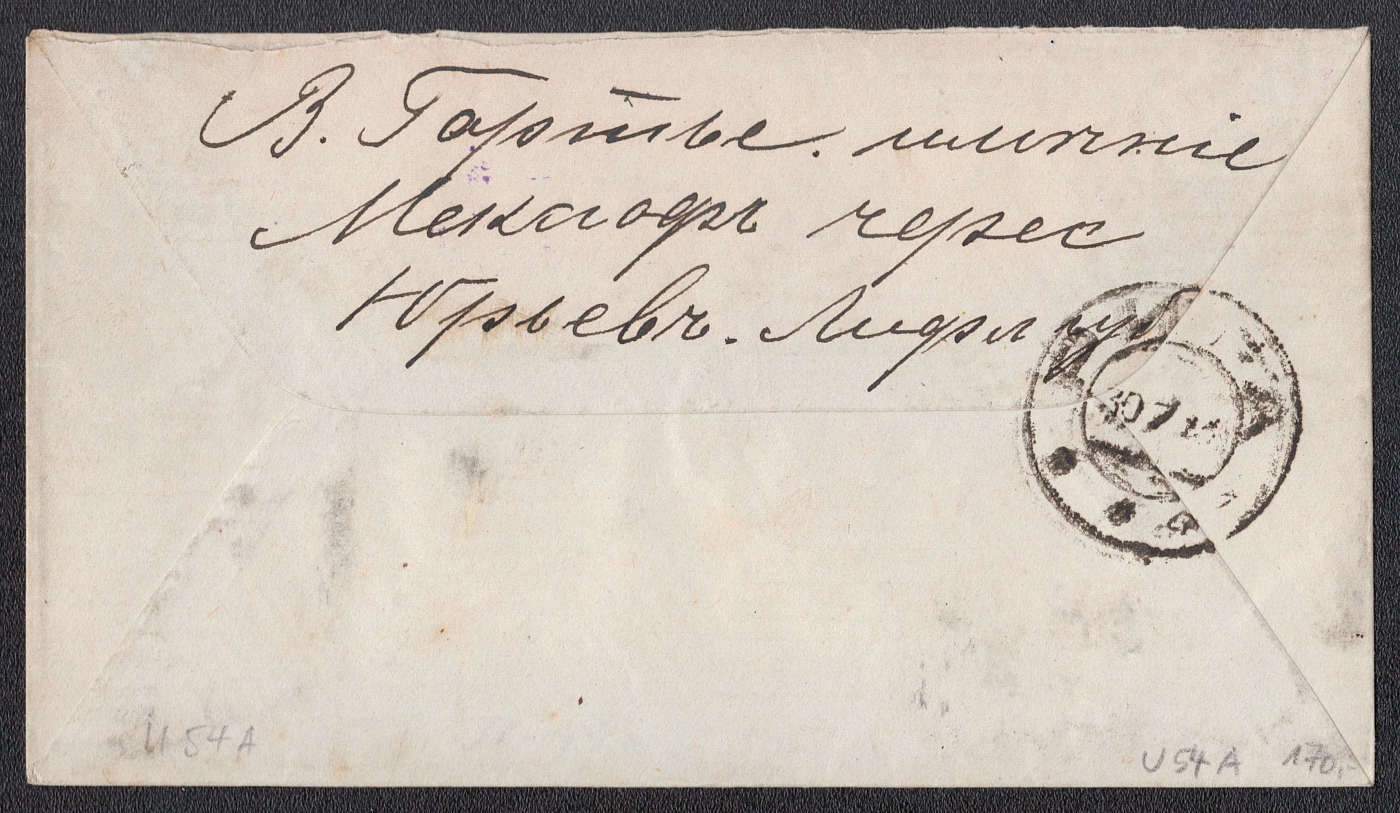 В. Гортье. имѣние
Мексгофъ через
Юрьевъ. Лифл гу
30 7
U 54 A
U 54 A 170,-